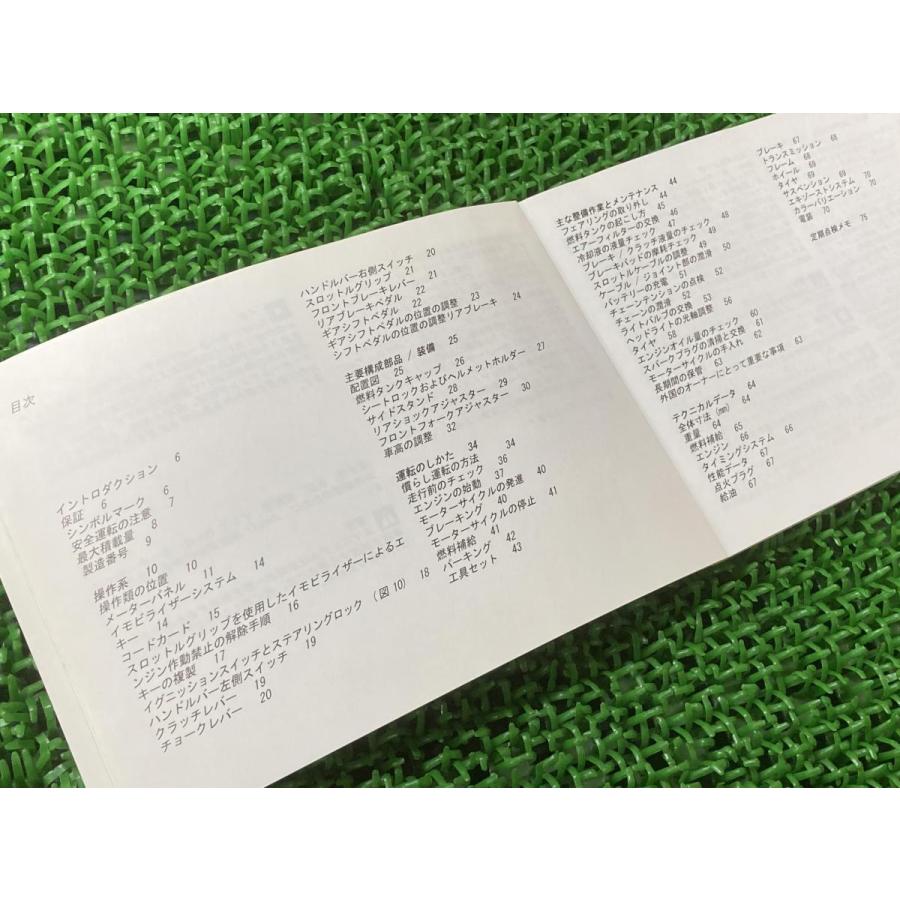 目次
イントロダクション 6
保証 6
シンボルマーク 6
安全運転の注意 7
最大積載量 8
製造番号 9
操作系 10
操作類の位置 10
メーターパネル 11
イモビライザーシステム 14
キー 14
コードカード 15
スロットルグリップを使用したイモビライザーによるエ
ンジン作動禁止の解除手順 16
キーの複製 17
イグニッションスイッチとステアリングロック (図10) 18
ハンドルバー左側スイッチ 19
クラッチレバー 19
チョークレバー 20
ハンドルバー右側スイッチ 20
スロットルグリップ 21
フロントブレーキレバー 21
リアブレーキペダル 22
ギアシフトペダル 22
ギアシフトペダルの位置の調整 23
シフトペダルの位置の調整リアブレーキ 24
主要構成部品 / 装備 25
配置図 25
燃料タンクキャップ 26
シートロックおよびヘルメットホルダー 27
サイドスタンド 28
リアショックアジャスター 29
フロントフォークアジャスター 30
車高の調整 32
運転のしかた 34
慣らし運転の方法 34
走行前のチェック 36
エンジンの始動 37
モーターサイクルの発進 40
ブレーキング 40
モーターサイクルの停止 41
燃料補給 41
パーキング 42
工具セット 43
主な整備作業とメンテナンス 44
フェアリングの取り外し 44
燃料タンクの起こし方 45
エアーフィルターの交換 46
冷却液の液量チェック 47
ブレーキ / クラッチ液量のチェック 48
ブレーキパッドの摩耗チェック 49
スロットルケーブルの調整 49
ケーブル / ジョイント部の潤滑 50
バッテリーの充電 51
チェーンテンションの点検 52
チェーンの潤滑 52
ライトバルブの交換 53
ヘッドライトの光軸調整 56
タイヤ 58
エンジンオイル量のチェック 60
スパークプラグの清掃と交換 61
モーターサイクルの手入れ 62
長期間の保管 63
外国のオーナーにとって重要な事項 63
テクニカルデータ 64
全体寸法 (mm) 64
重量 64
燃料補給 65
エンジン 66
タイミングシステム 66
性能データ 67
点火プラグ 67
給油 67
ブレーキ 67
トランスミッション 68
フレーム 68
ホイール 69
タイヤ 69
サスペンション 69
エキゾーストシステム 70
カラーバリエーション 70
電装 70
定期点検メモ 75